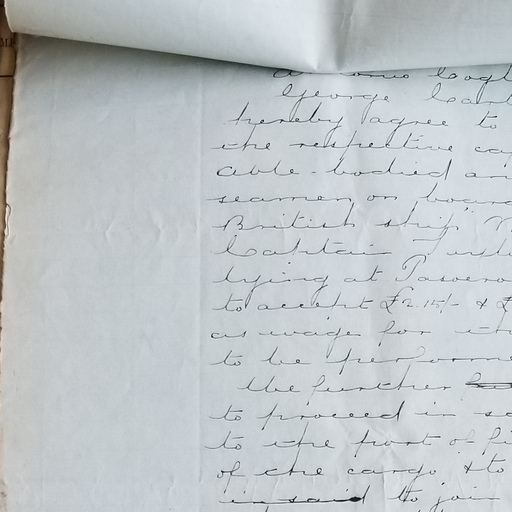 George
hereby agree to
the respective
able-bodied
seamen on board
British ship
Captain
lying at
to accept £2.15/- & £
as wage for
to be performe
We further
to proceed in
to the port of
of the cargo & to
in said to join